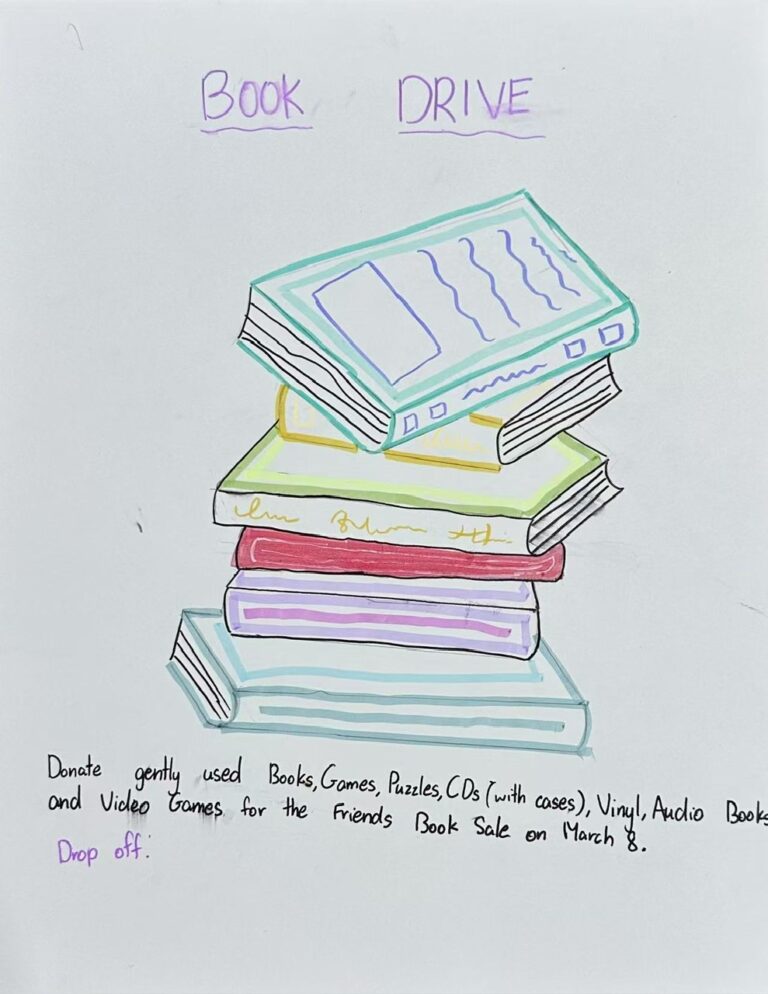 BOOK DRIVE
Donate gently used Books, Games, Puzzles, CDs (with cases), Vinyl, Audio Books
and Video Games for the Friends Book Sale on March 8.
Drop off: